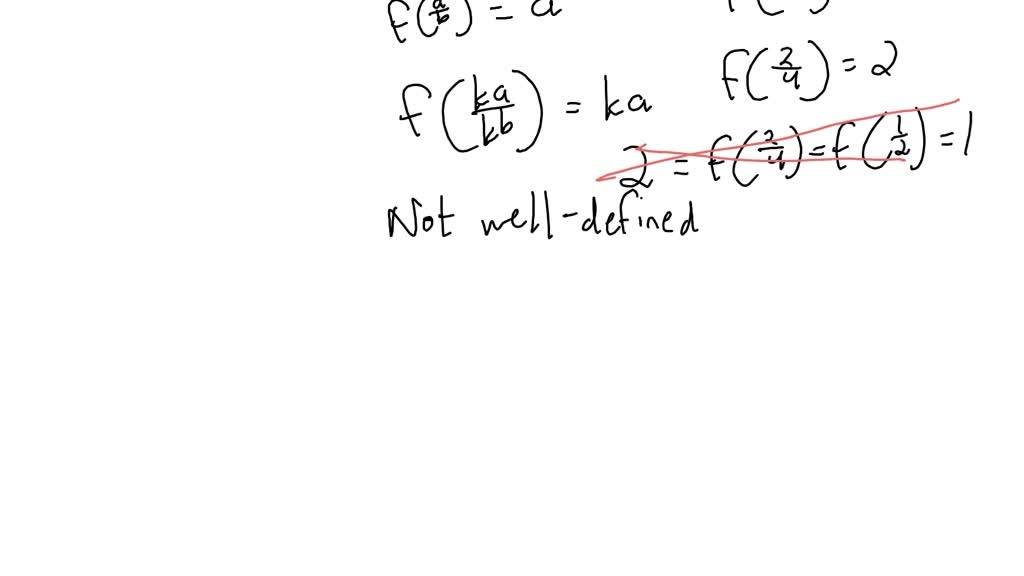 f(a/b) = a
f(2/4) = 2
f(ka/kb) = ka
2 = f(2/4) = f(1/2) = 1
Not well-defined